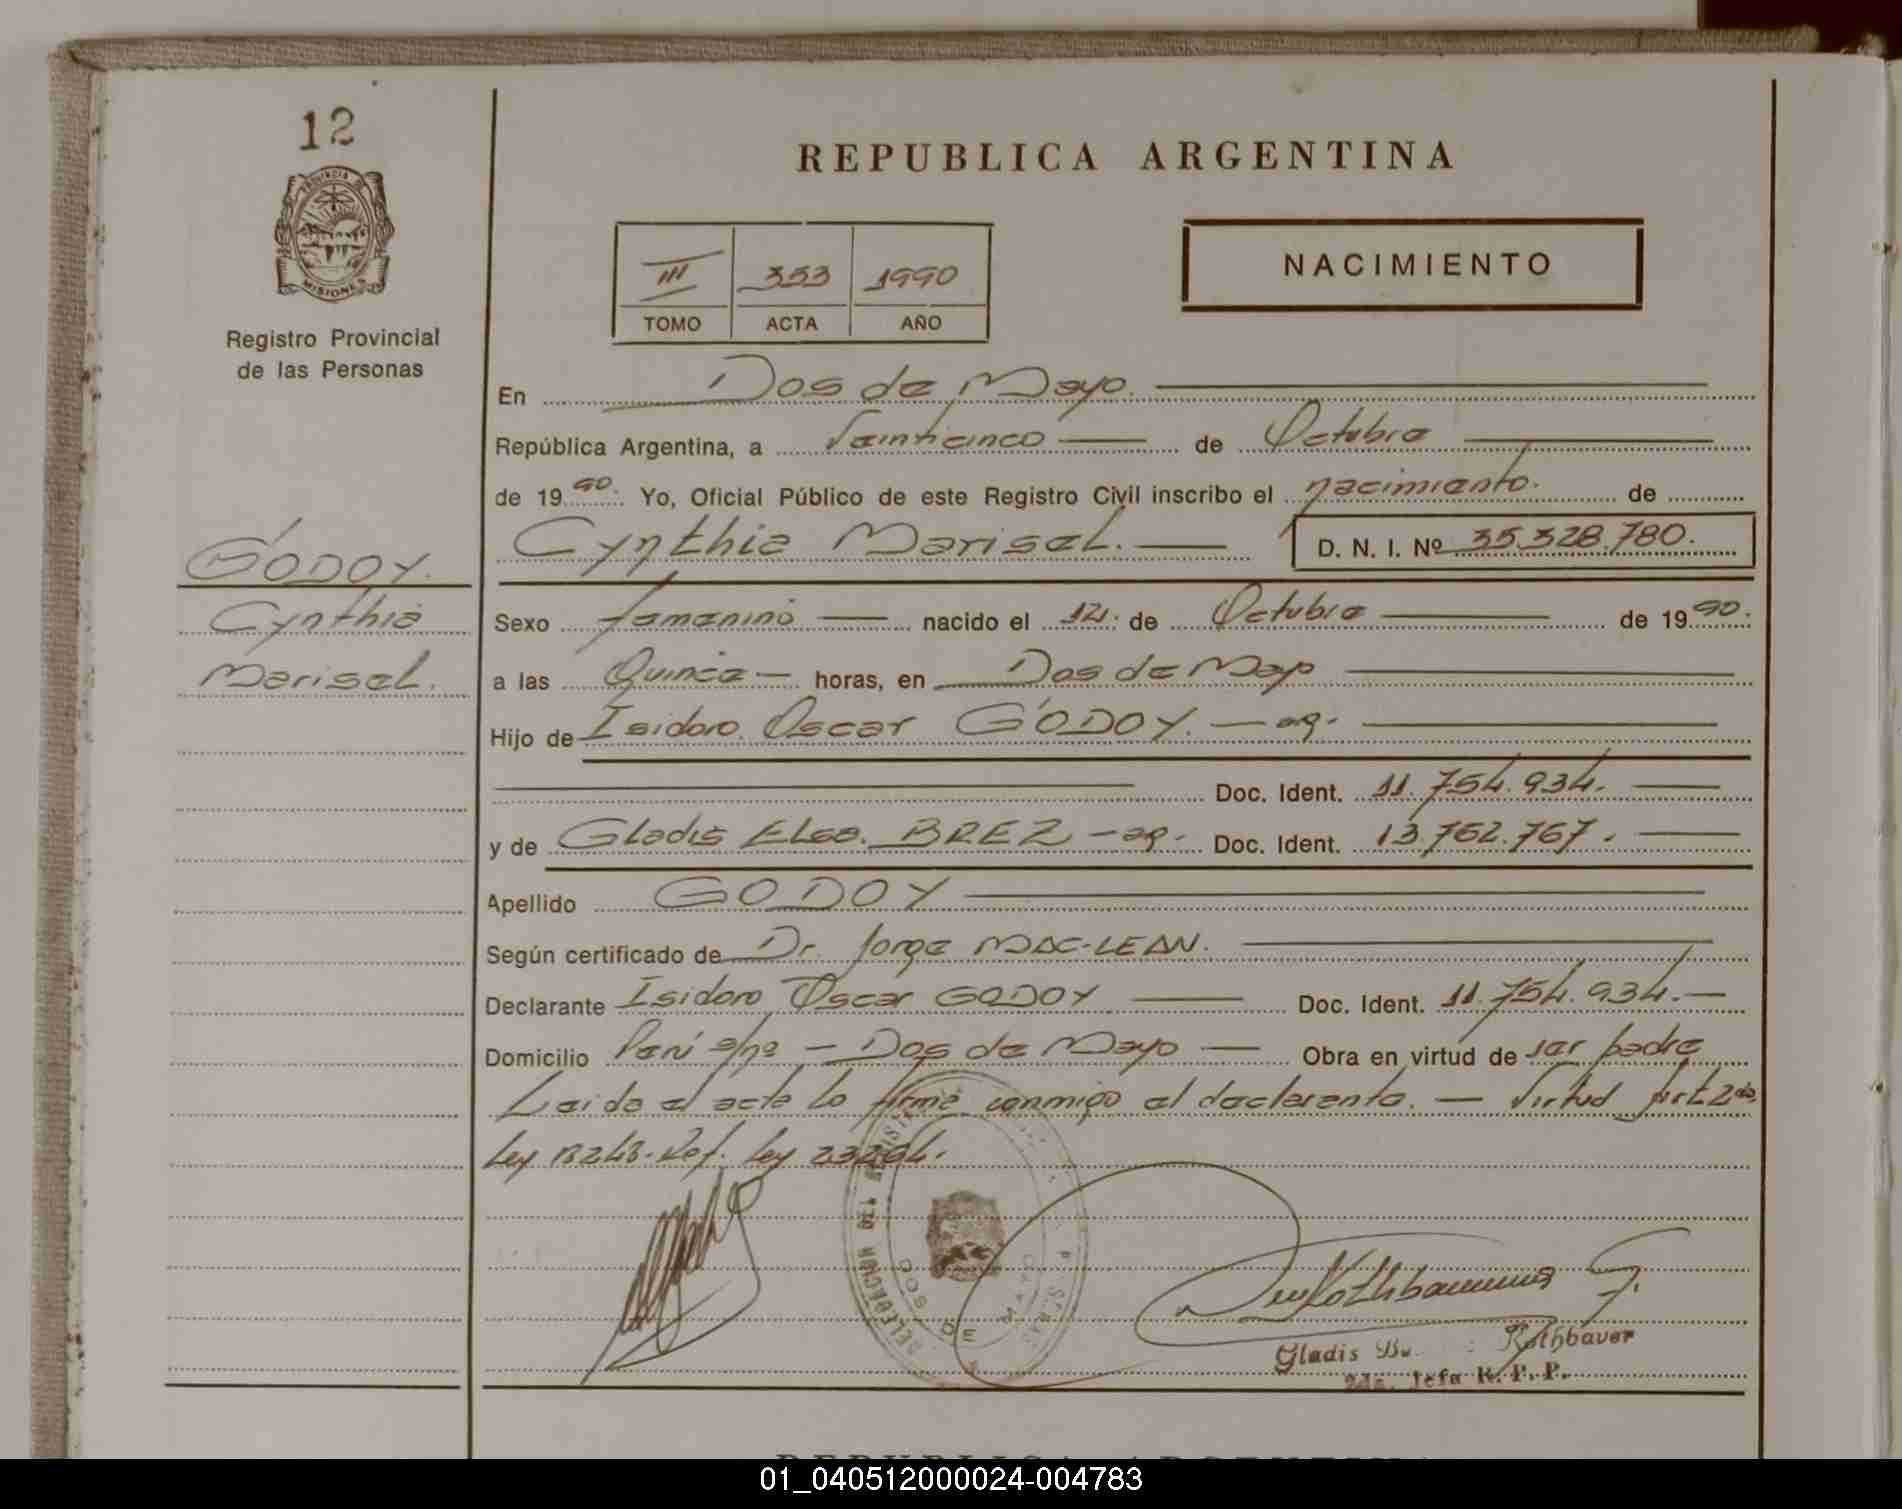 12
PROVINCIA DE
MISIONES
Registro Provincial
de las Personas
REPUBLICA ARGENTINA
III 353 1990
TOMO ACTA AÑO
NACIMIENTO
En Dos de Mayo.
República Argentina, a Veinticinco de Octubre
de 1990. Yo, Oficial Público de este Registro Civil inscribo el nacimiento. de
Cynthia Marisel. D. N. I. Nº 35.328.780.
GODOY.
Cynthia
Marisel.
Sexo femenino nacido el 121. de Octubre de 1990.
a las Quince horas, en Dos de Mayo
Hijo de Isidoro Oscar GODOY. - ag.
Doc. Ident. 11.754.934.
y de Gladis Elsa. BREZ - ag. Doc. Ident. 13.762.767.
Apellido GODOY
Según certificado de Dr. Jorge MAC-LEAN.
Declarante Isidoro Oscar GODOY Doc. Ident. 11.754.934.
Domicilio Perú s/nº - Dos de Mayo Obra en virtud de ser padre
Leida el acta lo firma conmigo el declarante. - Virtud Art 2do.
Ley 18248. Ref. Ley 23264.
DELEGACION DEL REGISTRO
DOS DE MAYO
Rothbauer G.
Gladis Rothbauer
2da. Jefa R. P. P.
REPUBLICA ARGENTINA
01_040512000024-004783